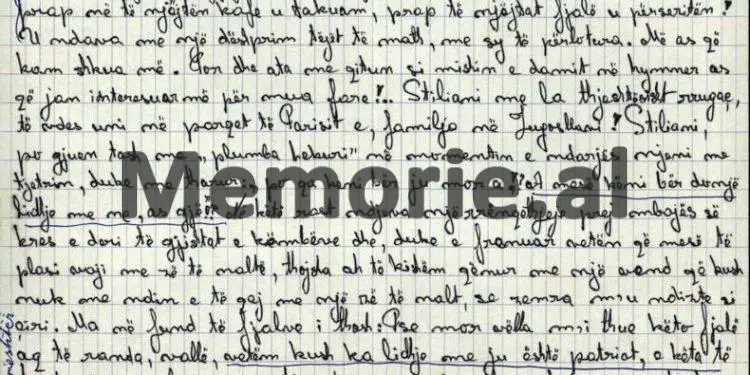 prap më të njëjtën kafe u takuam, prap të njëjtat fjalë u përseritën!
U ndava me një dëshprim tejet të math, me sy të përlotura. Më as që
kam shkua më. Por dhe ata me qitun si mishin e damit në hymner as
që jan interesuar më për mua fare!.. Stiliani me la thjeshtësisht rrugaç,
të vdes uni në parqet të Parisit e, familja në Jugosllavi! Stiliani,
po gjuen tash me „plumba hekuri" në momentin e ndarjës mjeni me
tjetrin, duke me thanur: po ça kemi bër ju mor a!? at nesë kemi bër durnjë
lidhje me ne, as gjë!! në këtë rast ndjeva një rrënqethje prej mbajës së
kres e deri të gjishtat e kambëve dhe, duke e franuar vetëm që mesë të
plasi vaji me zë të naltë, thojsha ah të kishëm qënur me një vend që kush
nuk me ndin e të qaj me një zë të nalt, se zemra m'u ndizte si
qiri. Ma në fund të fjalve i thash: Pse mor vëlla m'i thue këto fjalë
aq të randa, vallë, vetëm kush ka lidhje me ju është patriot, e këta të
Memorie.al